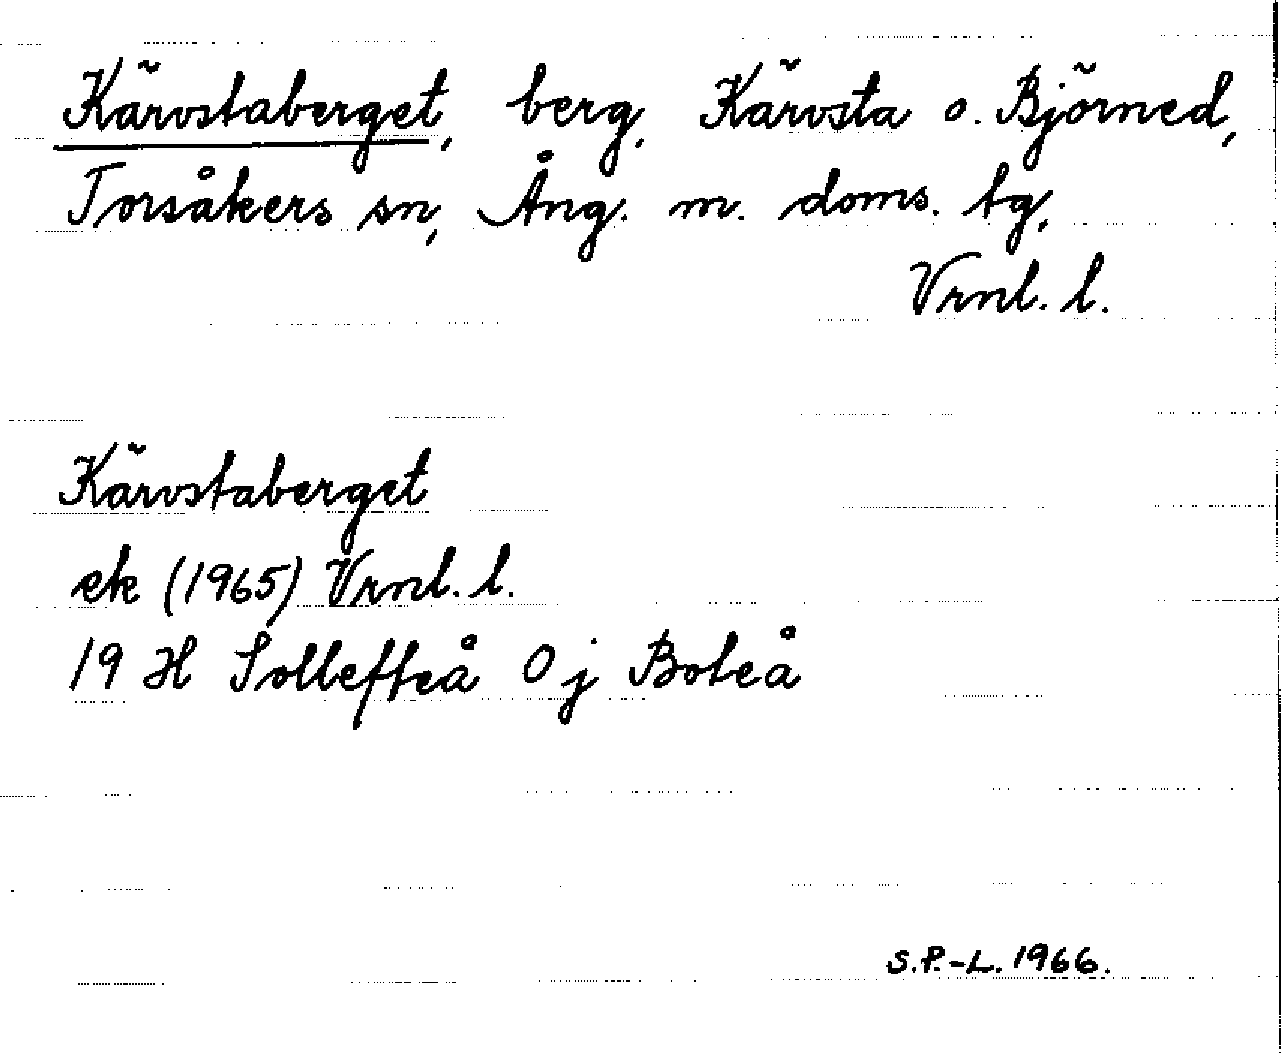 Kärvstaberget, berg, Kärvsta o. Björned,
Torsåkers sn, Ång. m. doms. tg,
Vrnl. l.
Kärvstaberget
ek (1965) Vrnl. l.
19 H Sollefteå 0j Boteå
S.P.-L. 1966.